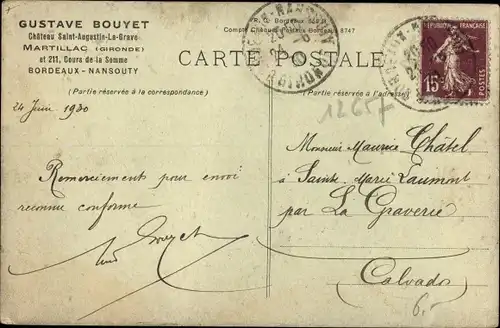 GUSTAVE BOUYET
Château Saint-Augustin-La-Grave
MARTILLAC (GIRONDE)
et 211, Cours de la Somme
BORDEAUX - NANSOUTY
R. C. Bordeaux
Compte Chèques Postaux Bordeaux 8747
CARTE POSTALE
(Partie réservée à la correspondance)
(Partie réservée à l'adresse)
BORDEAUX-NANSOUTY
GIRONDE
REPUBLIQUE FRANÇAISE
15
12657
24 Juin 1930
Remerciements pour envoi
reconnu conforme
Bouyet
Monsieur Maurice Châtel
à Sainte Marie Laumont
par La Graverie
Calvados
6.-